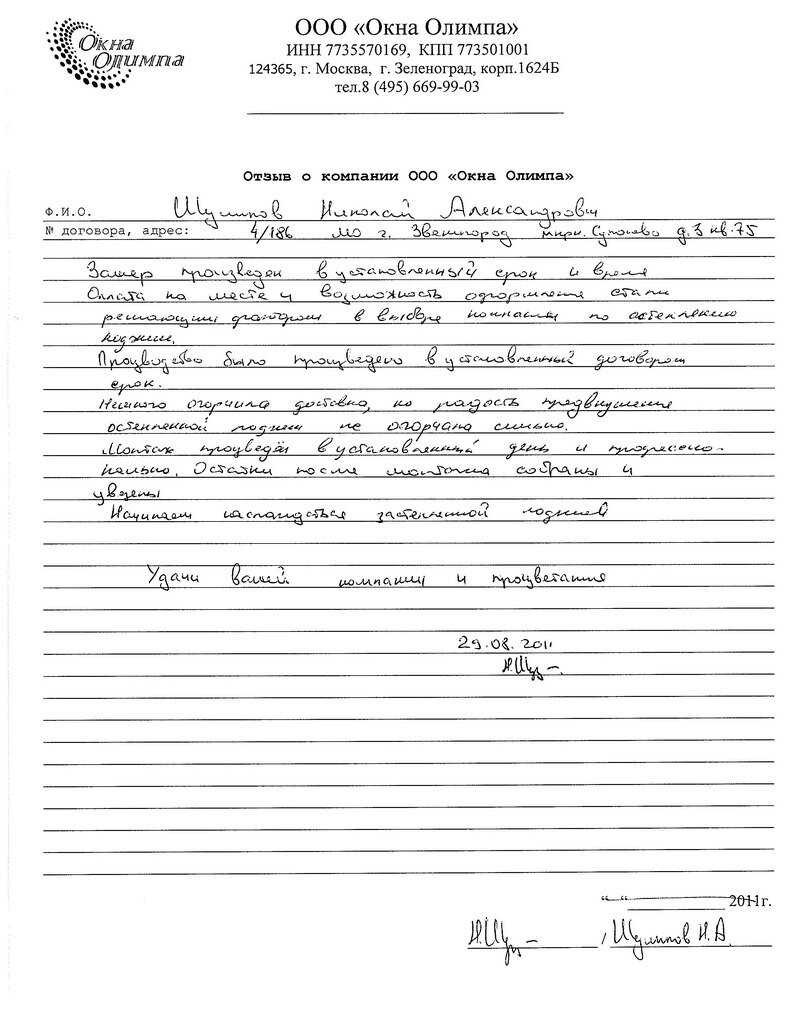 Окна
Олимпа
ООО «Окна Олимпа»
ИНН 7735570169, КПП 773501001
124365, г. Москва, г. Зеленоград, корп.1624Б
тел.8 (495) 669-99-03
Отзыв о компании ООО «Окна Олимпа»
Ф.И.О. Николай Александрович
№ договора, адрес: 4/186 МО г. Звенигород мкрн. Супонево д.3 кв.75
Замер произведен в установленный срок и время
Оплата на месте и возможность оформления стали
решающим фактором в выборе компании по остеклению
лоджии.
Произвоdство было произведено в установленный договором
срок.
Немного огорчила доставка, но радость предвкушения
остекленной лоджии не огорчана сильно.
Монтаж произведён в установленный день и професссио-
нально. Остатки после монтажа собраны и
увезены
Начинаем наслаждаться застекленной лоджией
Удачи вашей компании и процветания
29.08.2011
" " 2011г.
Н.А.